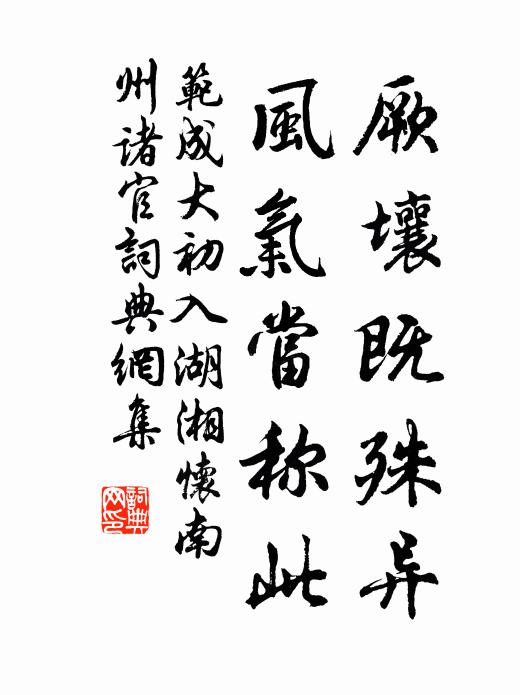 厥壤既殊异
風氣當称此
範成大初入湖湘懷南
州诸官詞典網集
詞典网印